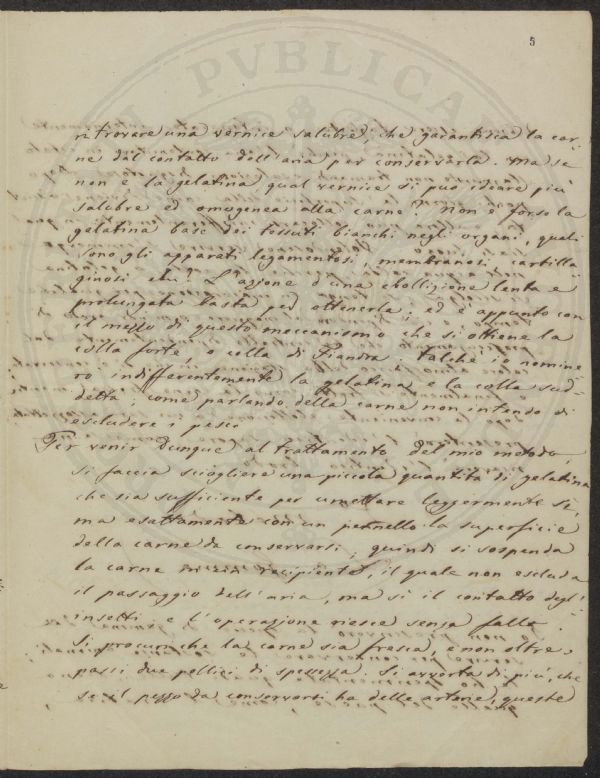 PVBLICA
5
ritrovare una vernice salubre, che garantisca la car
ne dal contatto dell'aria per conservarla. Ma se
non è la gelatina qual vernice si può ideare più
salubre ed omogenea alla carne? Non è forse la
gelatina base dei tessuti bianchi negli organi, quali
sono gli apparati legamentosi, membranosi, cartilla
ginosi? L'azione d'una ebollizione lenta e
prolungata basta per ottenerla; ed è appunto con
il mezzo di questo meccanismo che si ottiene la
colla forte, o colla di Fiandra. Talchè io nomine
rò indifferentemente la gelatina e la colla sud-
detta; come parlando della carne non intendo di
escludere i pesci
Per venir dunque al trattamento del mio metodo,
si faccia sciogliere una piccola quantità di gelatina
che sia sufficiente per umettare leggermente sì,
ma esattamente con un pennello la superficie
della carne da conservarsi; quindi si sospenda
la carne in un recipiente, il quale non escluda
il passaggio dell'aria, ma sì il contatto degl'
insetti e l'operazione riesce senza fallo.
Si procuri che la carne sia fresca, e non oltre-
passi due pollici di spessezza. Si avverta di più, che
se il pezzo da conservarsi ha delle arterie, queste